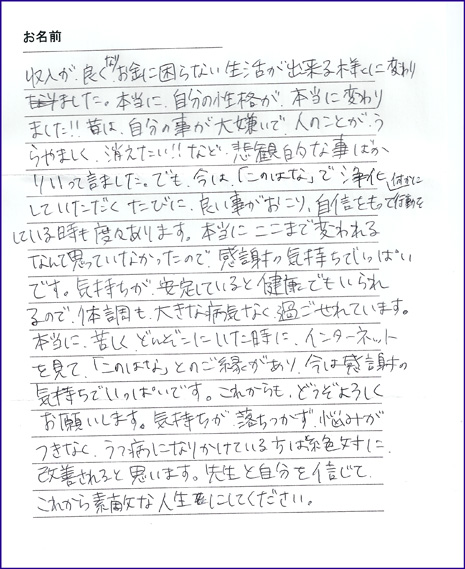 お名前
収入が、良くなりお金に困らない生活が出来る様に変わり
ました。本当に、自分の性格が、本当に変わり
ました!! 昔は、自分の事が大嫌いで、人のことが、う
らやましく、消えたい!! など、悲観的な事ばか
りいって言ました。でも、今は「このはな」で浄化
していただくたびに、良い事がおこり、自信をもって行動を
している時も度々あります。本当にここまで変われる
なんて思っていなかったので、感謝の気持ちでいっぱい
です。気持ちが、安定していると健康でもいられ
るので、体調も、大きな病気なく過ごせれています。
本当に、苦しく、どんぞこにいた時に、インターネット
を見て、「このはな」とのご縁があり、今は感謝の
気持ちでいっぱいです。これからも、どうぞよろしく
お願いします。気持ちが落ちつかず、悩みが
つきなく、うつ病になりかけている方は絶対に
改善されると思います。先生と自分を信じて、
これから素敵な人生にしてください。